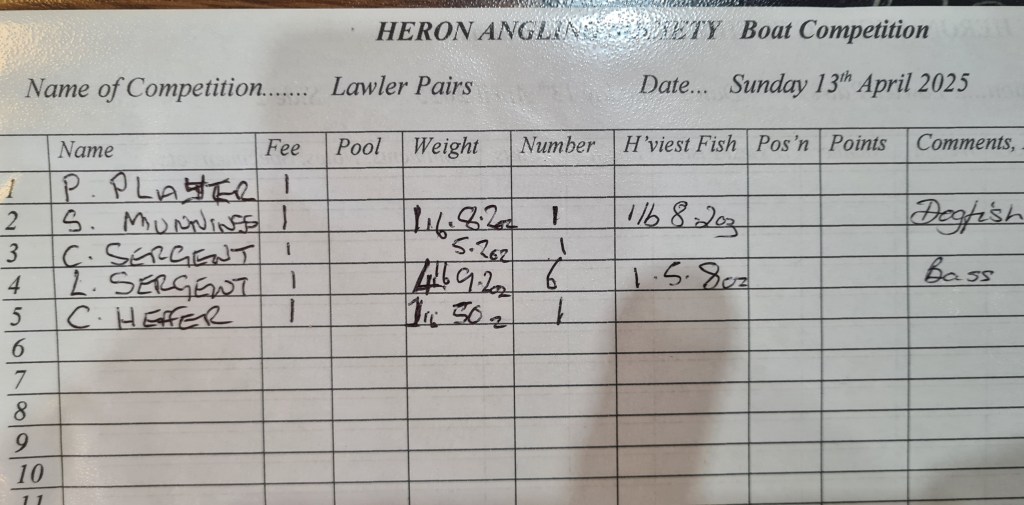 HERON ANGLING SOCIETY Boat Competition
Name of Competition....... Lawler Pairs Date... Sunday 13th April 2025
Name Fee Pool Weight Number H'viest Fish Pos'n Points Comments,
1 P. 1
2 S. MUNNINGS 1 1lb.8.2oz 1 1lb 8.2oz Dogfish
3 C. SERGENT 1 5.2oz 1
4 L. SERGENT 1 4lb 9.2oz 6 1.5.8oz Bass
5 C. HEFFER 1 1lb 5oz 1
6
7
8
9
10
11